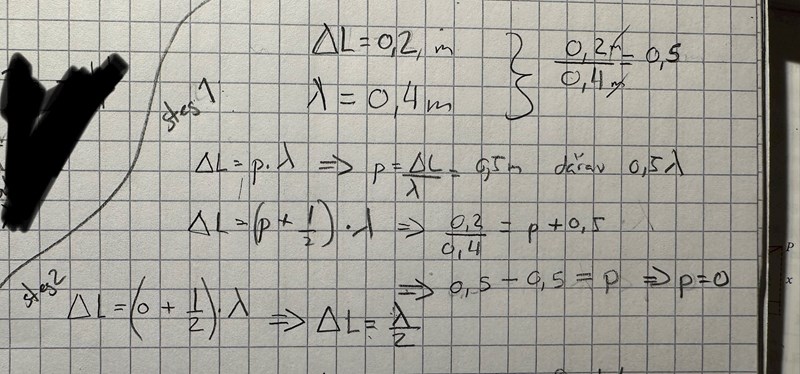 ΔL = 0,2 m
0,2 m / 0,4 m = 0,5
steg 1
λ = 0,4 m
ΔL = p · λ ⇒ p = ΔL/λ = 0,5 m därav 0,5 λ
ΔL = (p + 1/2) · λ ⇒ 0,2/0,4 = p + 0,5
⇒ 0,5 - 0,5 = p ⇒ p = 0
steg 2
ΔL = (0 + 1/2) · λ ⇒ ΔL = λ/2
P
x